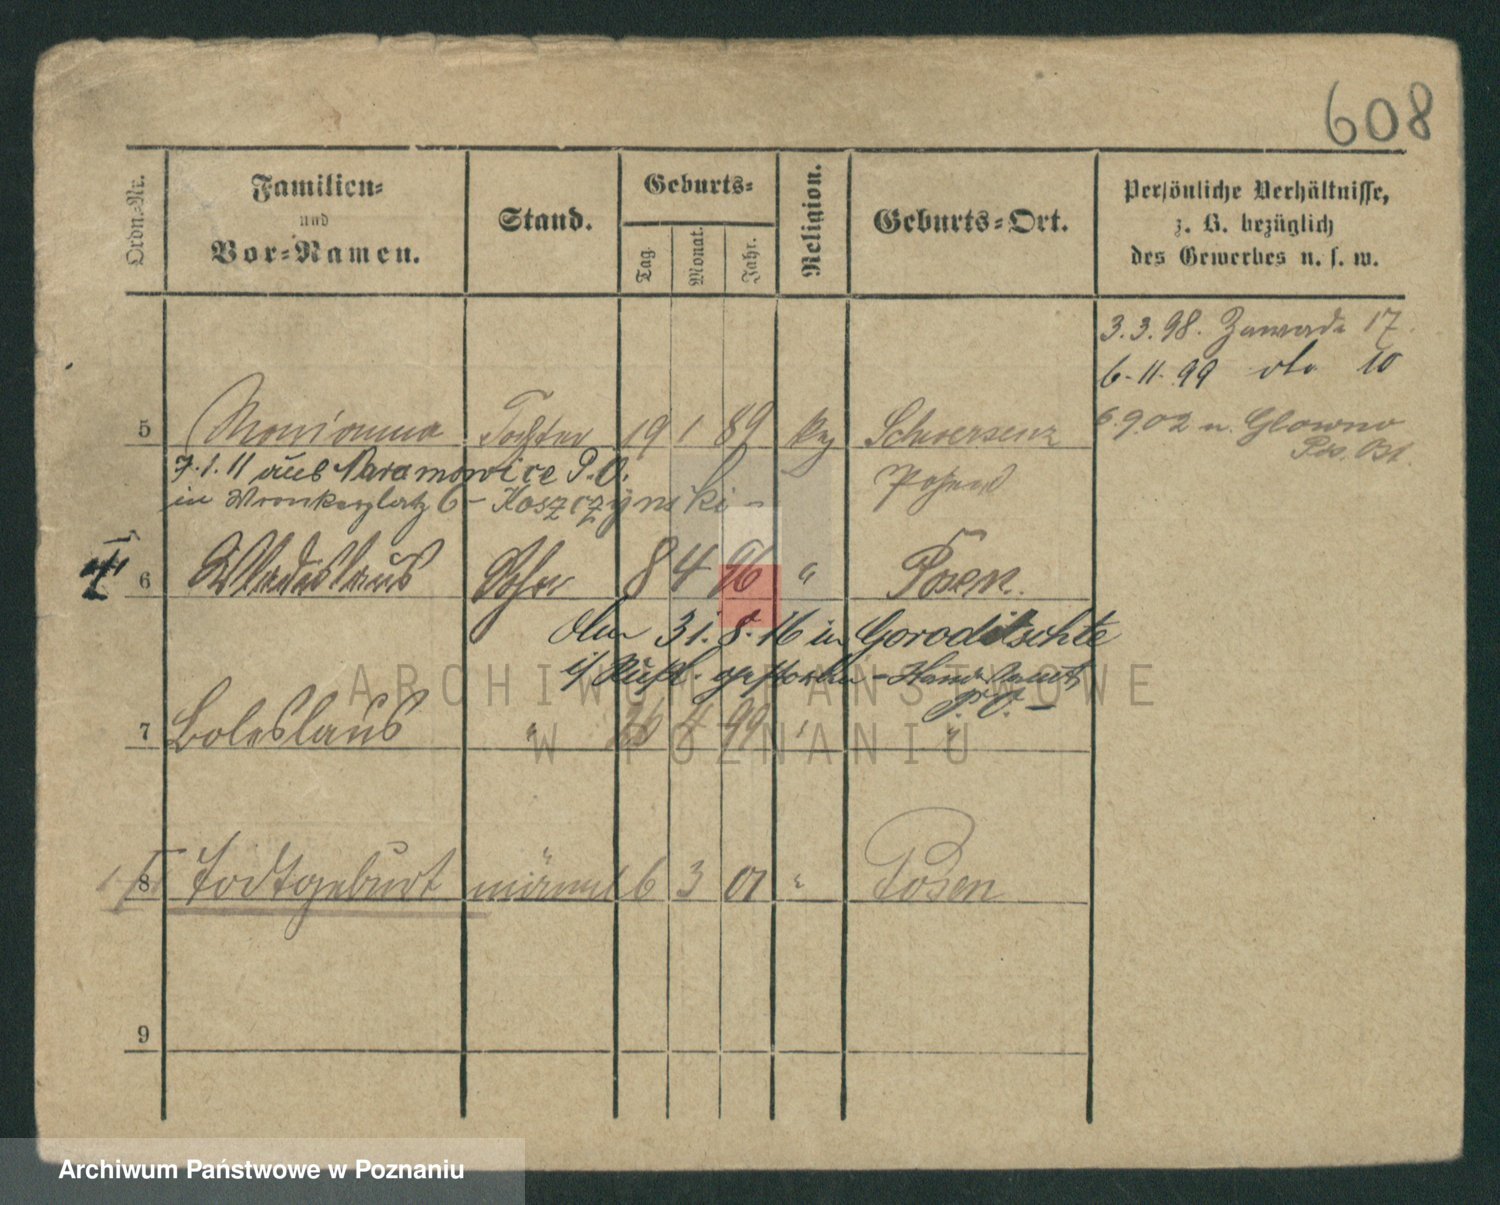 608
Ordn.-Nr.
Familien-
und
Vor-Namen.
Stand.
Geburts-
Tag.
Monat.
Jahr.
Religion.
Geburts-Ort.
Persönliche Verhältnisse,
z. B. bezüglich
des Gewerbes u. s. w.
3.3.98. Zawade 17.
6.11.99 dto 10
6.9.02 n. Glowno
Pos. Ost.
5 Marianna Tochter 19 1 89 Schwersenz
7.1.11 aus Naramowice P.O.
in Wronkerplatz 6 - Koszczynski -
Posen
6 Wladislaus Sohn 8 4 96 " Posen.
Am 31.8.16 in Goroditschte
i/ Rußl. gestorben -
P.O. -
7 Boleslaus " 26 4 99 " "
8 Todtgeburt männl 6 3 01 " Posen
9
ARCHIWUM PAŃSTWOWE
W POZNANIU
Archiwum Państwowe w Poznaniu